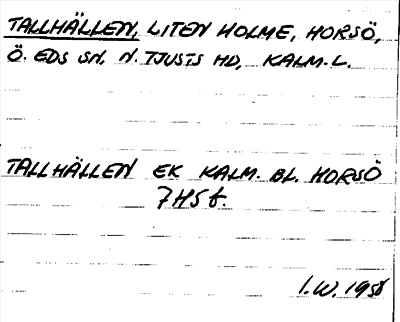 TALLHÄLLEN, LITEN HOLME, HORSÖ,
Ö. EDS SN, N. TJUSTS HD, KALM. L.
TALLHÄLLEN EK KALM. BL. HORSÖ
7H5f.
I.W. 1958